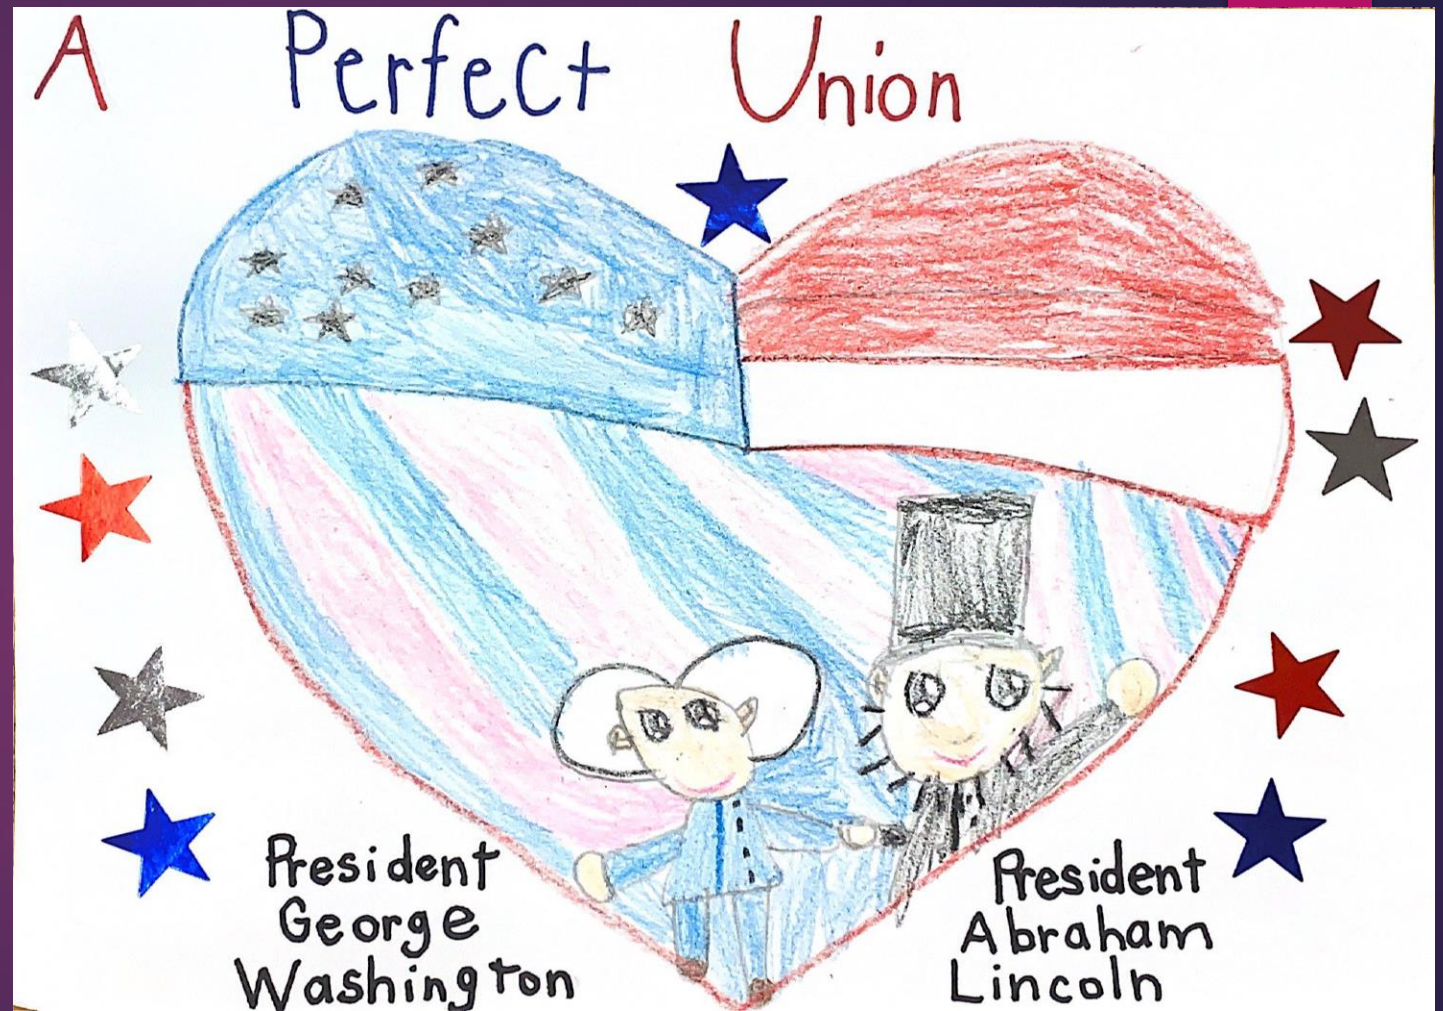 A Perfect Union
President
George
Washington
President
Abraham
Lincoln